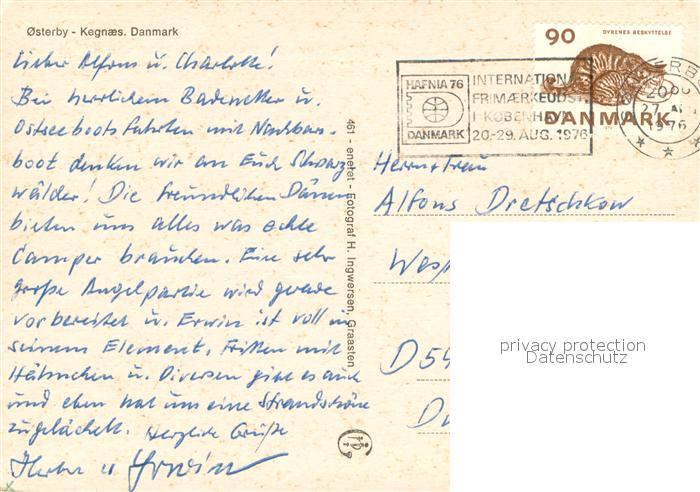 Østerby - Kegnæs. Danmark
Lieber Alfons u. Charlotte!
Bei herrlichem Badewetter u.
Ostseebootsfahrten mit Nachbar-
boot denken wir an Euch Schwarz
wälder! Die freundlichen Dänen
bieten uns alles was echte
Camper brauchen. Eine sehr
große Angelpartie wird gerade
vorbereitet u. Erwin ist voll in
seinem Element. Frisken mit
Hähnchen u. Diversen gibt es auch
und eben hat uns eine Strandschöne
zugelächelt. Herzliche Grüße
u Erwin
461 - eneret - Fotograf H. Ingwersen, Graasten
HAFNIA 76
DANMARK
INTERNATIONAL
FRIMÆRKEUDST.
I KØBENHAVN
20.-29. AUG. 1976
90
DYRENES BESKYTTELSE
DANMARK
27.
1976
Herrn + Frau
Alfons Dretschkow
D 54
privacy protection
Datenschutz